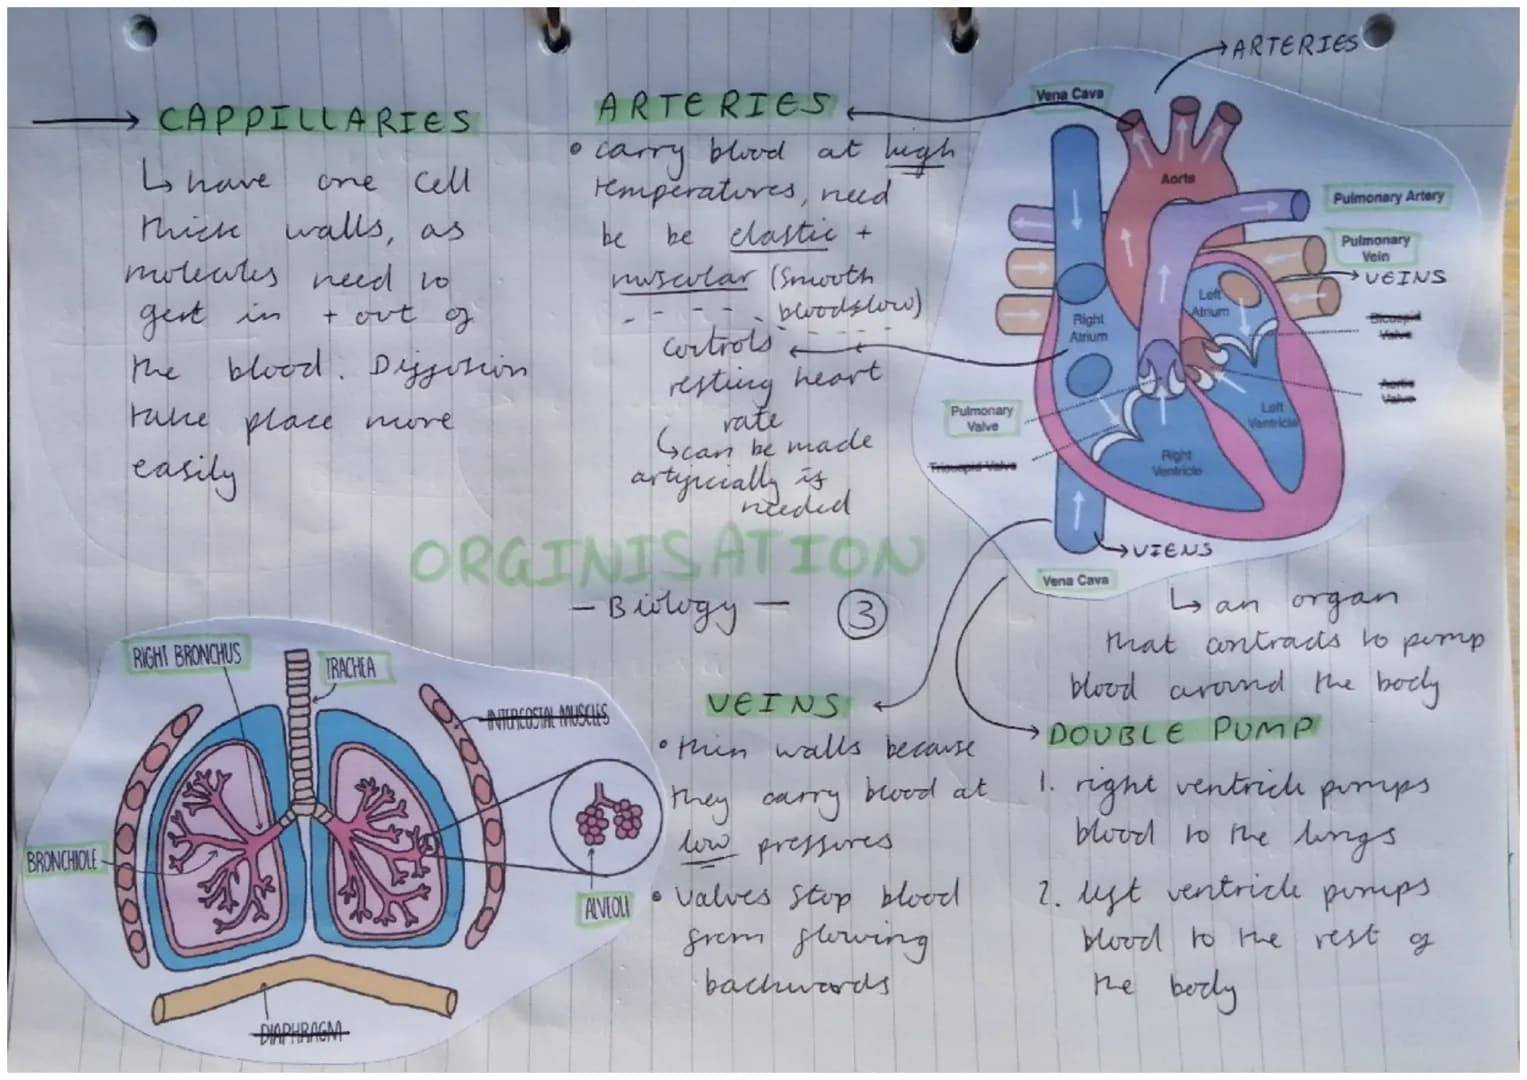 CAPPILLARIES
↳ have one cell
thick walls, as
molecules need to
get in + out of
the blood. Diffusion
take place more
easily
ARTERIES
• carry blood at high
temperatures, need
be be elastic +
muscular (smooth
bloodflow)
controls
resting heart
rate
↳ can be made
artificially is
needed
→ ARTERIES
Vena Cava
Aorta
Pulmonary Artery
Pulmonary
Vein
→ VEINS
Left
Atrium
Right
Atrium
Bicuspid
Valve
Aortic
Valve
Pulmonary
Valve
Left
Ventricle
Tricuspid Valve
Right
Ventricle
→ VIENS
Vena Cava
↳ an organ
that contracts to pump
blood around the body
ORGINISATION
- Biology - ③
RIGHT BRONCHUS
TRACHEA
INTERCOSTAL MUSCLES
BRONCHIOLE
ALVEOLI
DIAPHRAGM
VEINS
• thin walls because
they carry blood at
low pressures
• valves stop blood
from flowing
backwords
DOUBLE PUMP
1. right ventricle pumps
blood to the lungs
2. left ventricle pumps
blood to the rest of
the body